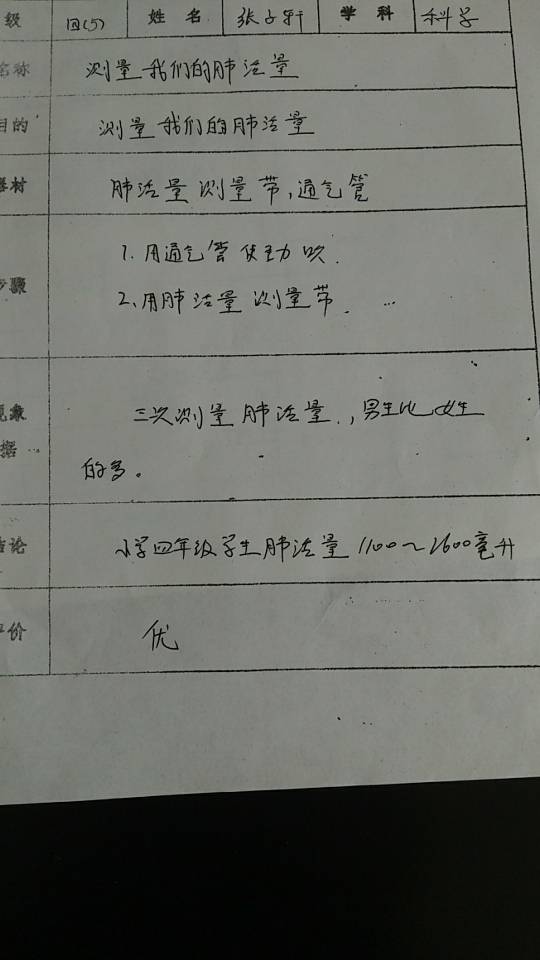 级 四(5) 姓名 张子轩 学科 科学
名称 测量我们的肺活量
目的 测量我们的肺活量
器材 肺活量测量带,通气管
步骤 1.用通气管使劲吹.
2.用肺活量测量带.
现象 三次测量肺活量.,男生比女生
据 的多。
结论 小学四年级学生肺活量1100~1600毫升
评价 优